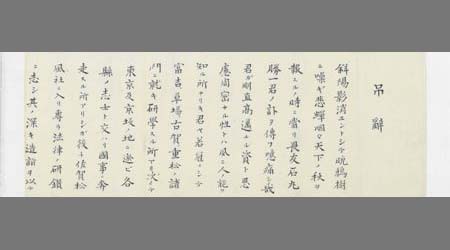 吊辭
斜陽影消エントシテ晩鴉樹
ニ噪ギ悲蟬咽ンデ天下ノ秋ヲ
報スルノ時ニ當リ畏友石丸
勝一君ノ訃ヲ傳フ噫痛シ哉
君ガ剛直高邁ナル資ト思
慮周密ナル性トハ夙ニ人ノ能ク
知ル所ナリキ君ヤ若冠ニシテ
富吉草場古賀重松ノ諸
門ニ就キ研學スル所アリ次イデ
東京及京坂ノ地ニ遊ビ各
縣ノ志士ト交ハリ國事ニ奔
走スル所アリシガ後チ佐賀松
風社ニ入リ專ラ法律ノ研鑽
ニ志シ其ノ深キ造詣ヲ以テ